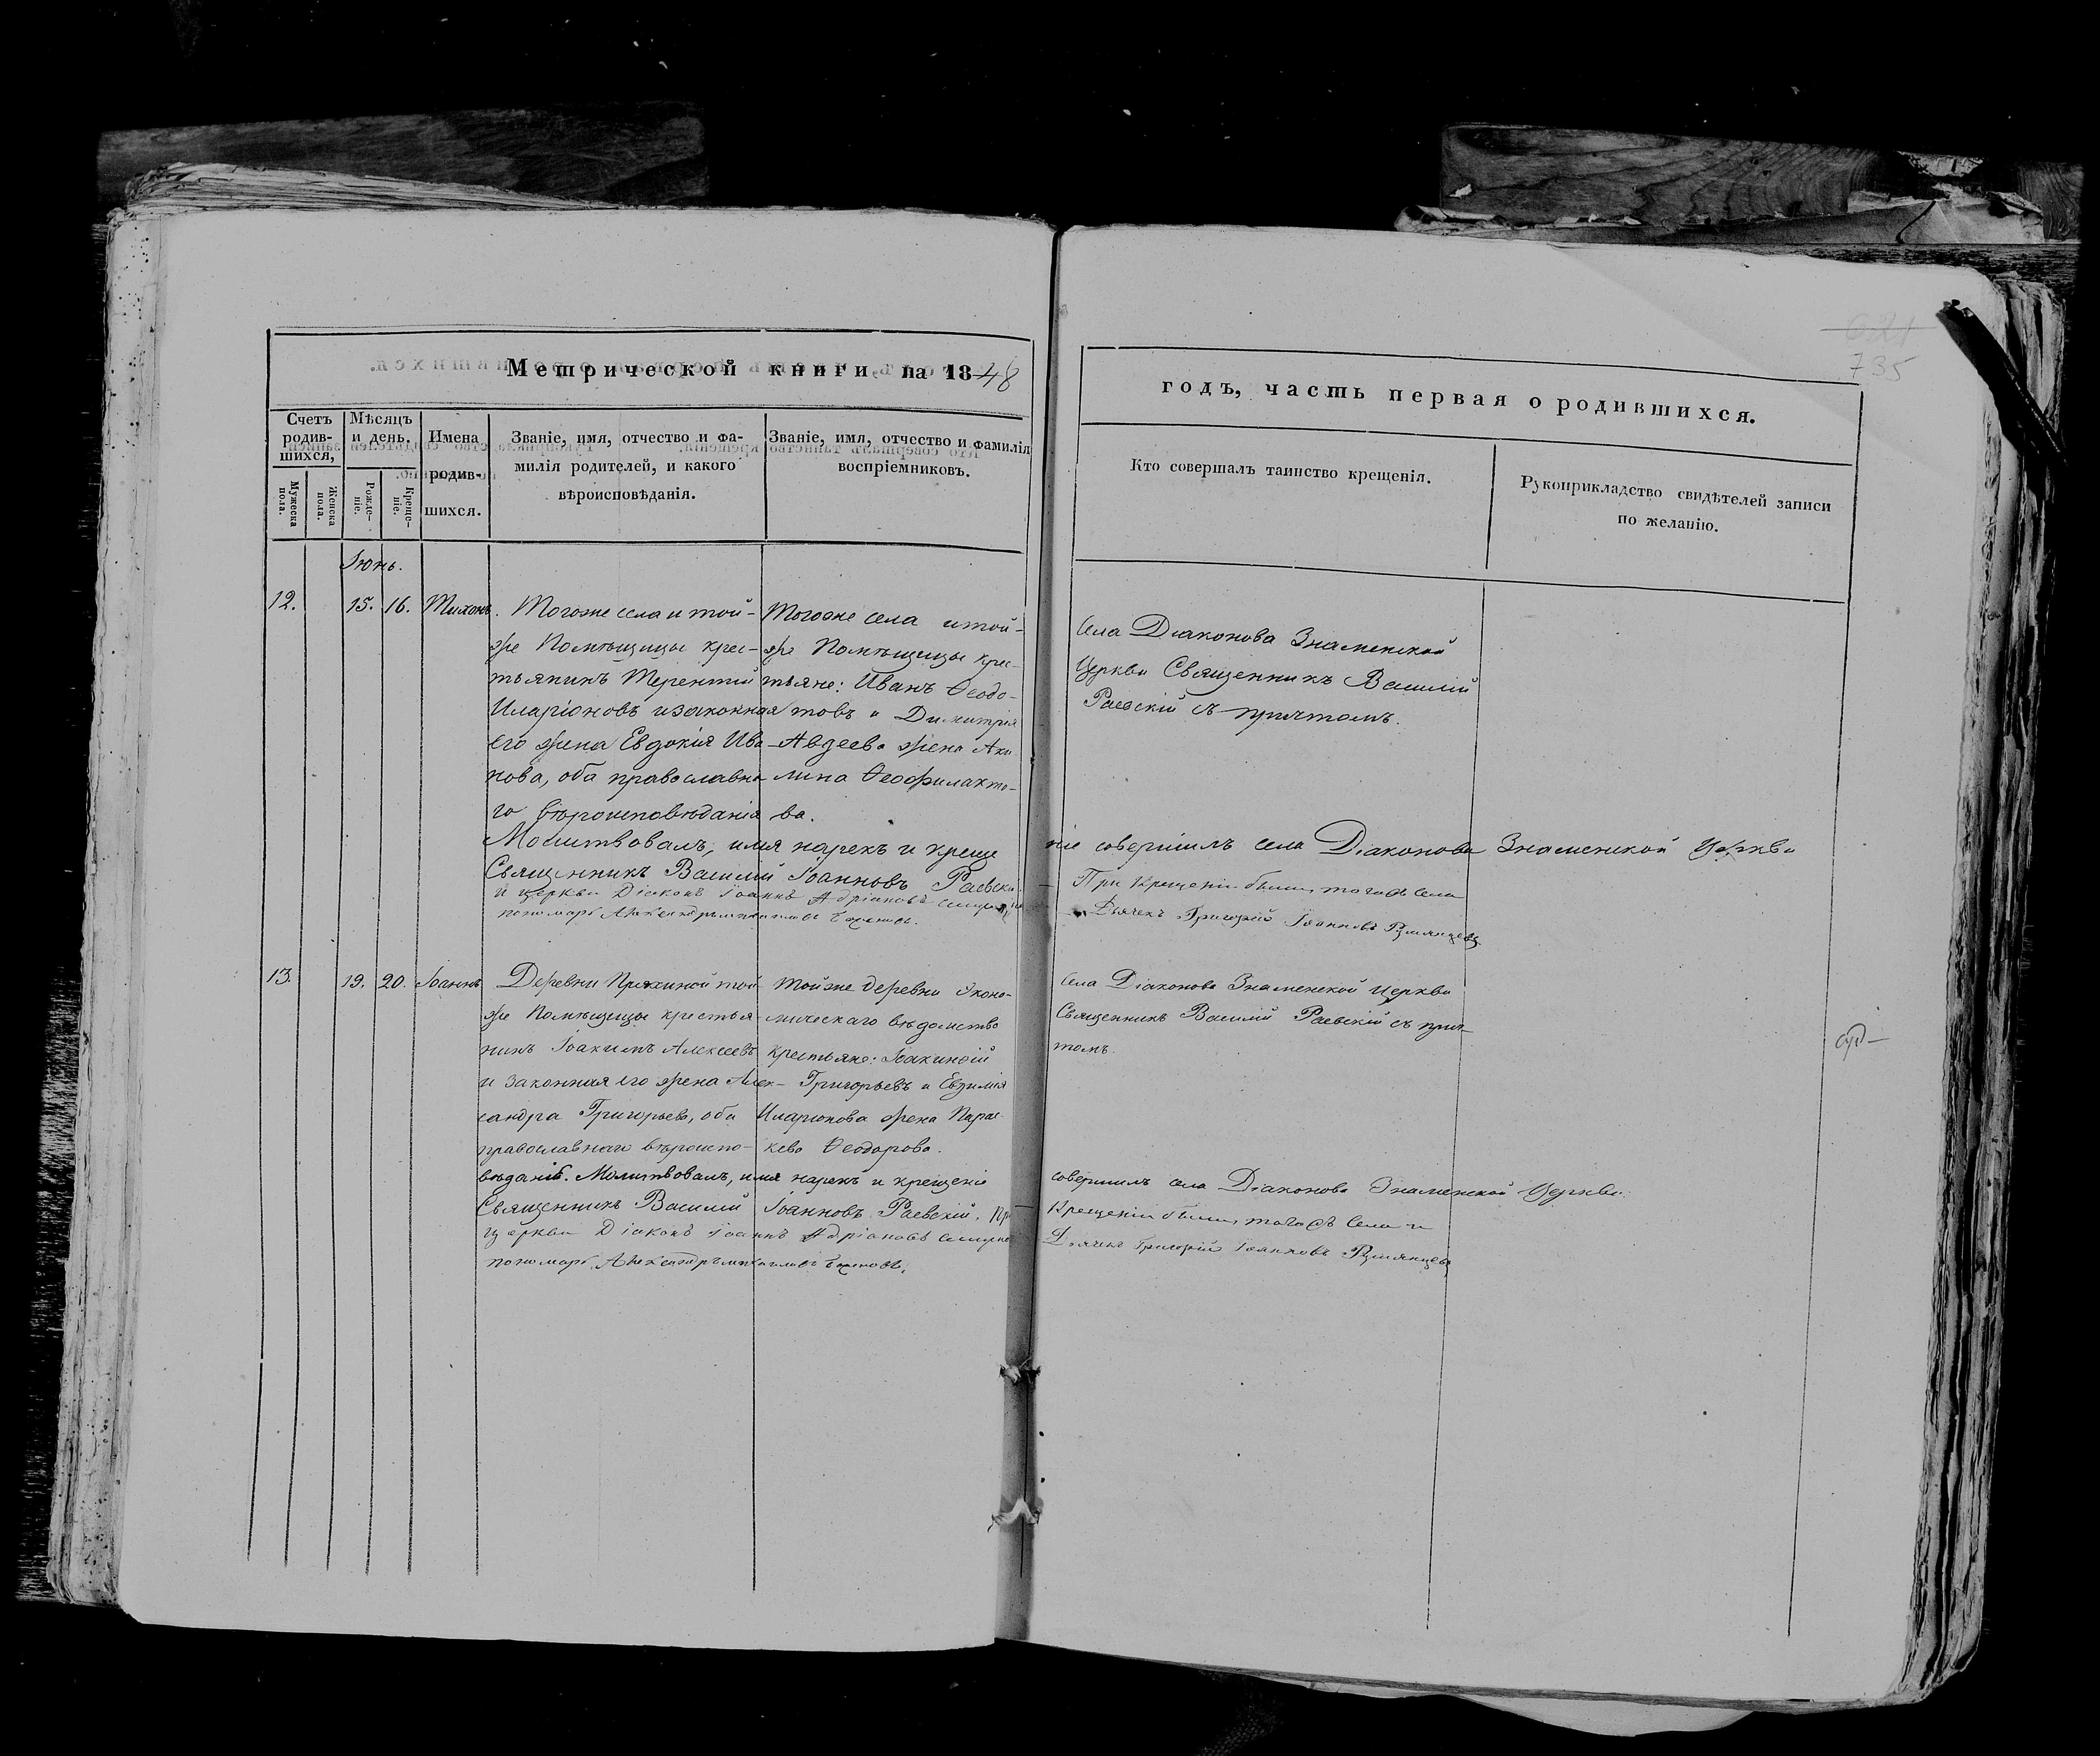 Метрической книги, на 1848
годъ, часть первая о родившихся.
621
735
Счетъ родив-шихся,
Мужеска пола.
Женска пола.
Мѣсяцъ и день.
Рожде-ніе.
Креще-ніе.
Имена родив-шихся.
Званіе, имя, отчество и фа-
милія родителей, и какого
вѣроисповѣданія.
Званіе, имя, отчество и фамилія
воспріемниковъ.
Кто совершалъ таинство крещенія.
Рукоприкладство свидѣтелей записи
по желанію.
Іюнь.
12. 15. 16. Тихонъ.
Тогоже села и той-
же Помѣщицы крес-
тьянинъ Терентій
Иларіоновъ и законная
его жена Евдокія Ива-
нова, оба православна
го вѣроисповѣданія
Тогоже села и той-
же Помѣщицы крес-
тьяне: Иванъ Ѳеодо-
товъ и Димитрія
Авдеева жена Аку
лина Ѳеофилакто-
ва.
Села Діаконова Знаменской
Церкви Священникъ Василій
Раевскій съ причтомъ.
Молитвовалъ, имя нарекъ и креще
ніе совершилъ села Діаконова Знаменской Церкви
Священникъ Василій Іоанновъ Раевскій
При Крещеніи были, тогожъ села
и церкви Діаконъ Іоаннъ Адріановъ
Дьячекъ Григорій Іоанновъ Румянцевъ
пономарь Александръ
13. 19. 20. Іоаннъ
Деревни Пряхиной той
же Помѣщицы крестья-
нинъ Іоакимъ Алексеевъ
и законная его жена Алек-
сандра Григорьева, оба
православнаго вѣроиспо-
вѣданія.
Тойже деревни Эконо-
мическаго вѣдомства
крестьяне: Іоакинѳій
Григорьевъ и Евѳимія
Иларіонова жена Парас-
кева Ѳеодорова.
Села Діаконова Знаменской Церкви
Священникъ Василій Раевскій съ прич-
томъ.
Молитвовалъ, имя нарекъ и крещеніе
совершилъ села Діаконова Знаменской Церкви
Священникъ Василій Іоанновъ Раевскій. При
Крещеніи были, тогожъ села и
церкви Діаконъ Іоаннъ Адріановъ
Дьячекъ Григорій Іоанновъ Румянцевъ
пономарь Александръ